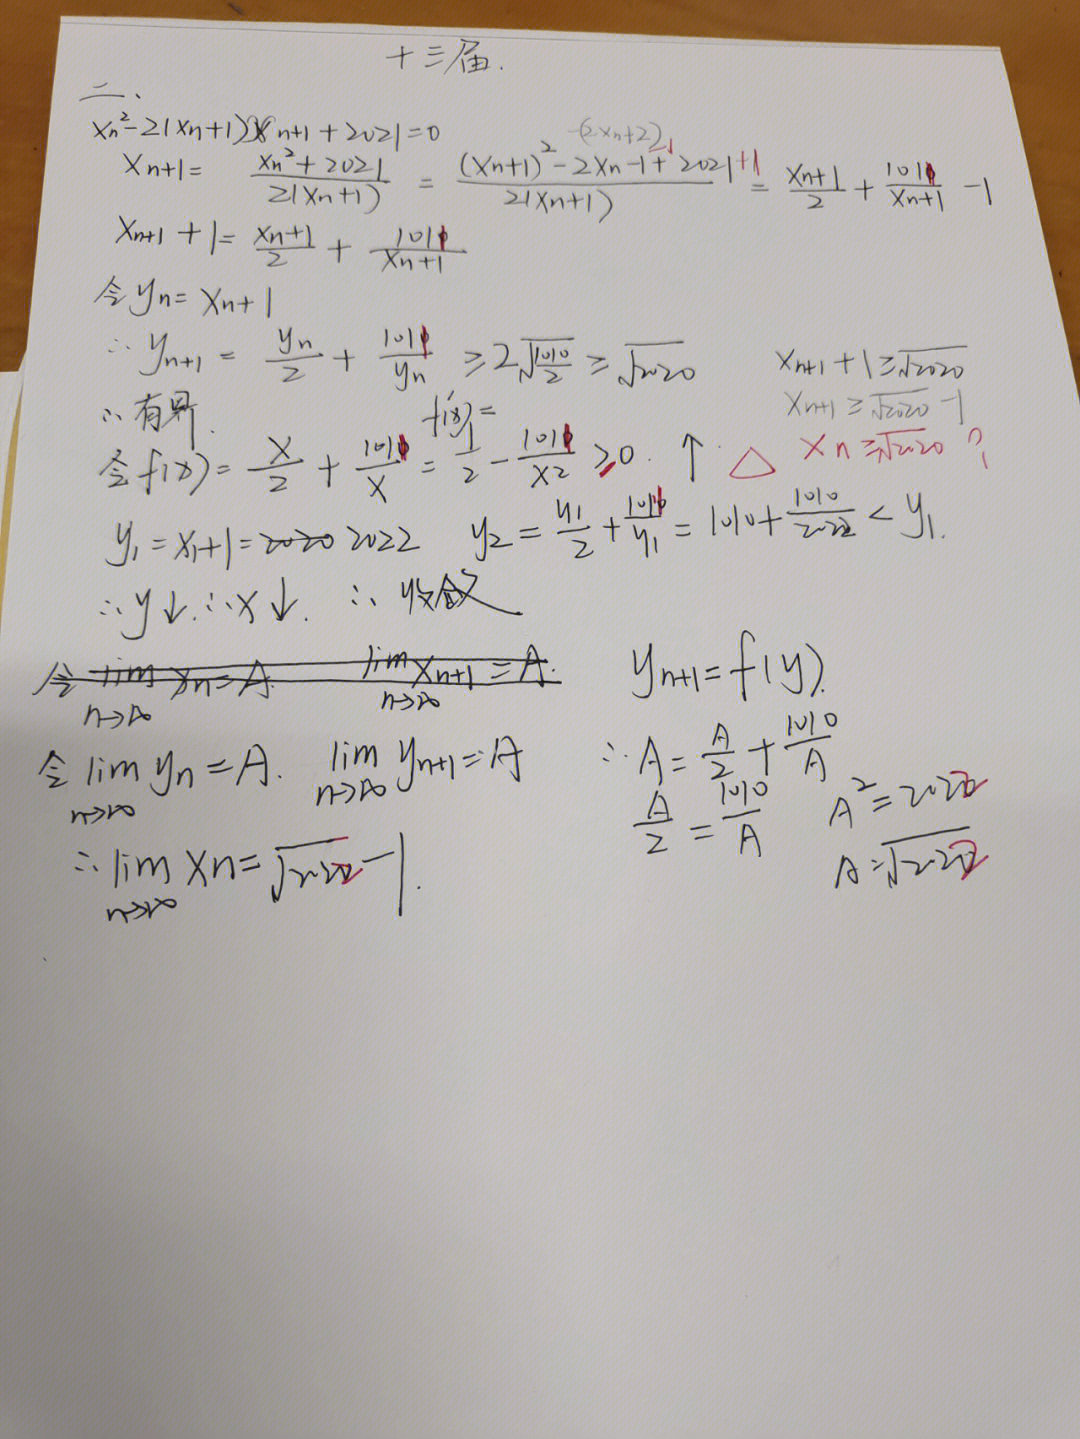 十三届.
二、
xn²-2(xn+1)xn+1+2021=0
-(2xn+2)
xn+1= xn²+2021 / 2(xn+1) = (xn+1)²-2xn-1+2021+1 / 2(xn+1) = xn+1 / 2 + 1011 / xn+1 -1
xn+1+1= xn+1 / 2 + 1011 / xn+1
令yn=xn+1
∴ yn+1 = yn / 2 + 1011 / yn ≥2√1010/2 ≥√2020
xn+1+1≥√2020
xn+1≥√2020-1
∴有界.
f'(x)=
令f(x)= x / 2 + 1011 / x = 1 / 2 - 1011 / x2 ≥0. ↑. △ xn≥√2020 ?
y1=x1+1=2020 2022 y2= y1 / 2 + 1011 / y1 =1010+ 1010 / 2022 <y1.
∴y↓.∴x↓. ∴收敛
令 lim n→∞ xn=A. lim n→∞ xn+1=A. yn+1=f(y).
令 lim n→∞ yn=A. lim n→∞ yn+1=A ∴A= A / 2 + 1010 / A
A / 2 = 1010 / A A²=2022
∴ lim n→∞ xn=√2022-1. A=√2022